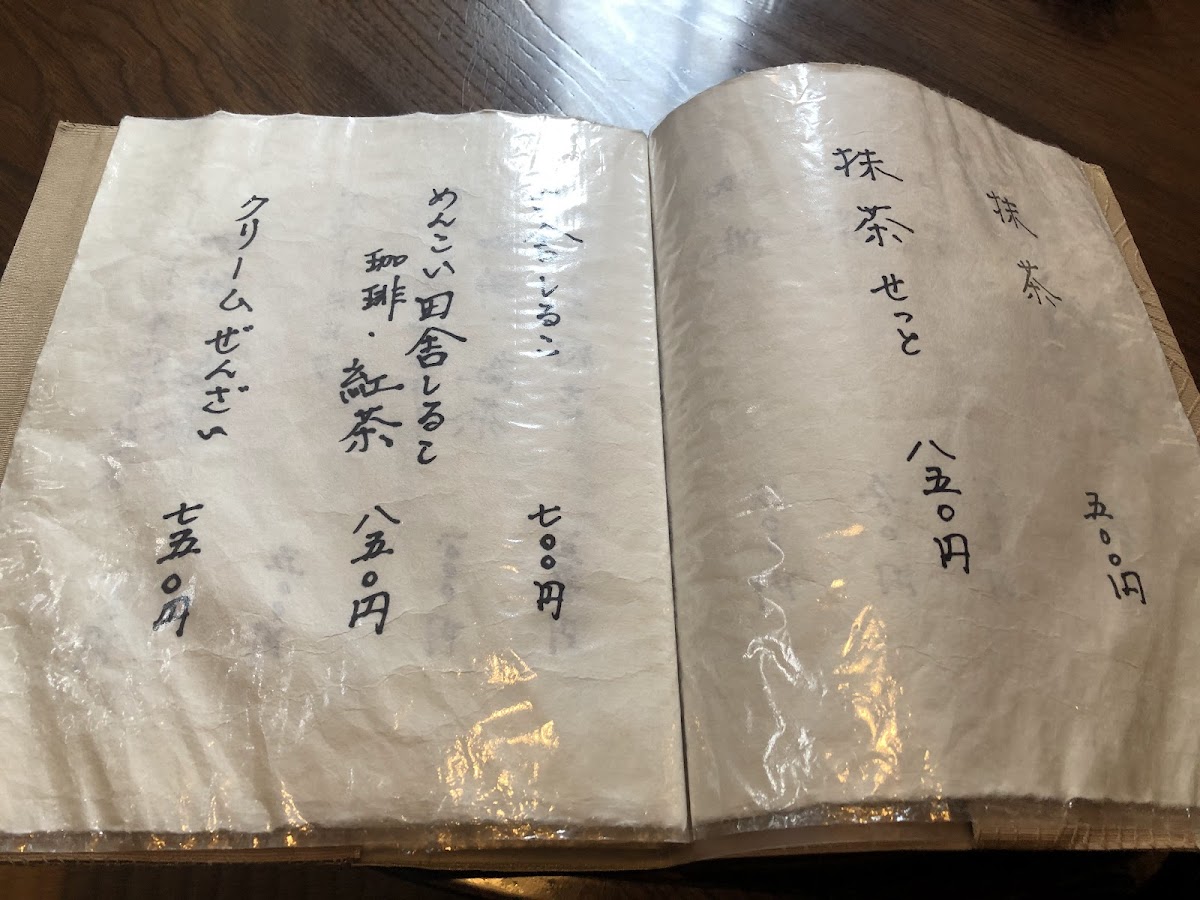 抹茶
五〇〇円
抹茶せっと
八五〇円
しるこ
七〇〇円
めんこい田舎しるこ
珈琲・紅茶
八五〇円
クリームぜんざい
七五〇円